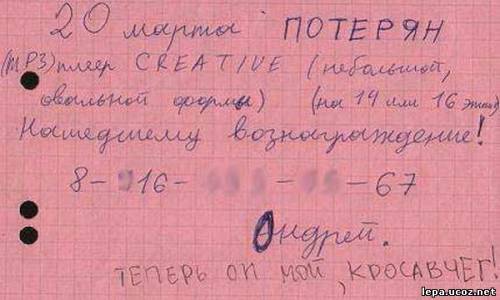 20 марта ПОТЕРЯН
(MP3) плеер CREATIVE (небольшой,
овальной формы) (на 14 или 16 этаж)
Нашедшему вознаграждение!
8- 16- - -67
Андрей.
ТЕПЕРЬ ОН МОЙ, КРОСАВЧЕГ!
lepa.ucoz.net